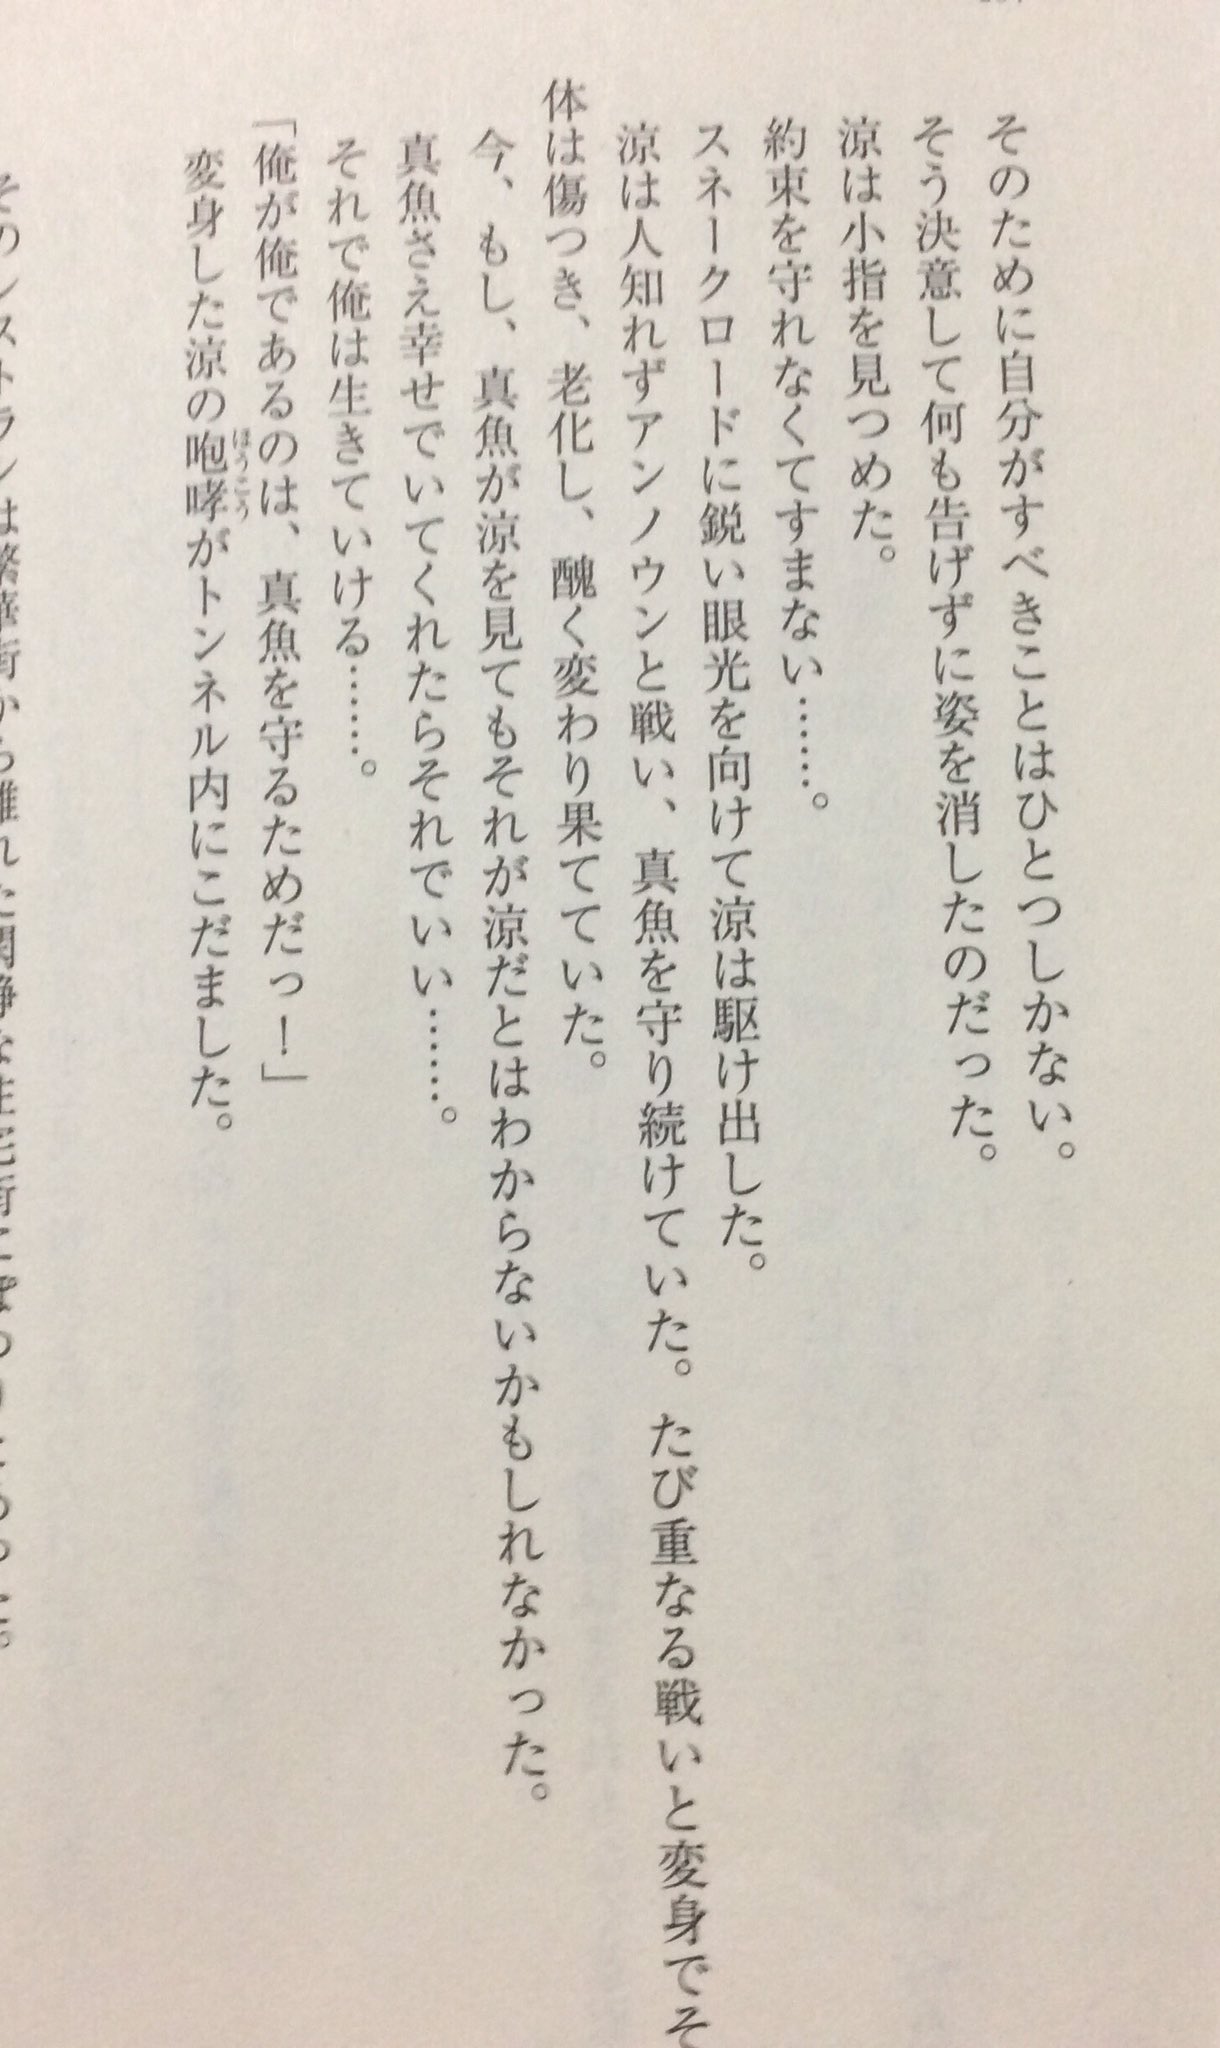 そのために自分がすべきことはひとつしかない。
そう決意して何も告げずに姿を消したのだった。
涼は小指を見つめた。
約束を守れなくてすまない……。
スネークロードに鋭い眼光を向けて涼は駆け出した。
涼は人知れずアンノウンと戦い、真魚を守り続けていた。たび重なる戦いと変身でそ
体は傷つき、老化し、醜く変わり果てていた。
今、もし、真魚が涼を見てもそれが涼だとはわからないかもしれなかった。
真魚さえ幸せでいてくれたらそれでいい……。
それで俺は生きていける……。
「俺が俺であるのは、真魚を守るためだっ！」
変身した涼の咆哮がトンネル内にこだました。
ほうこう
そのレストランは繁華街から離れた閑静な住宅街にぽつりとあった。